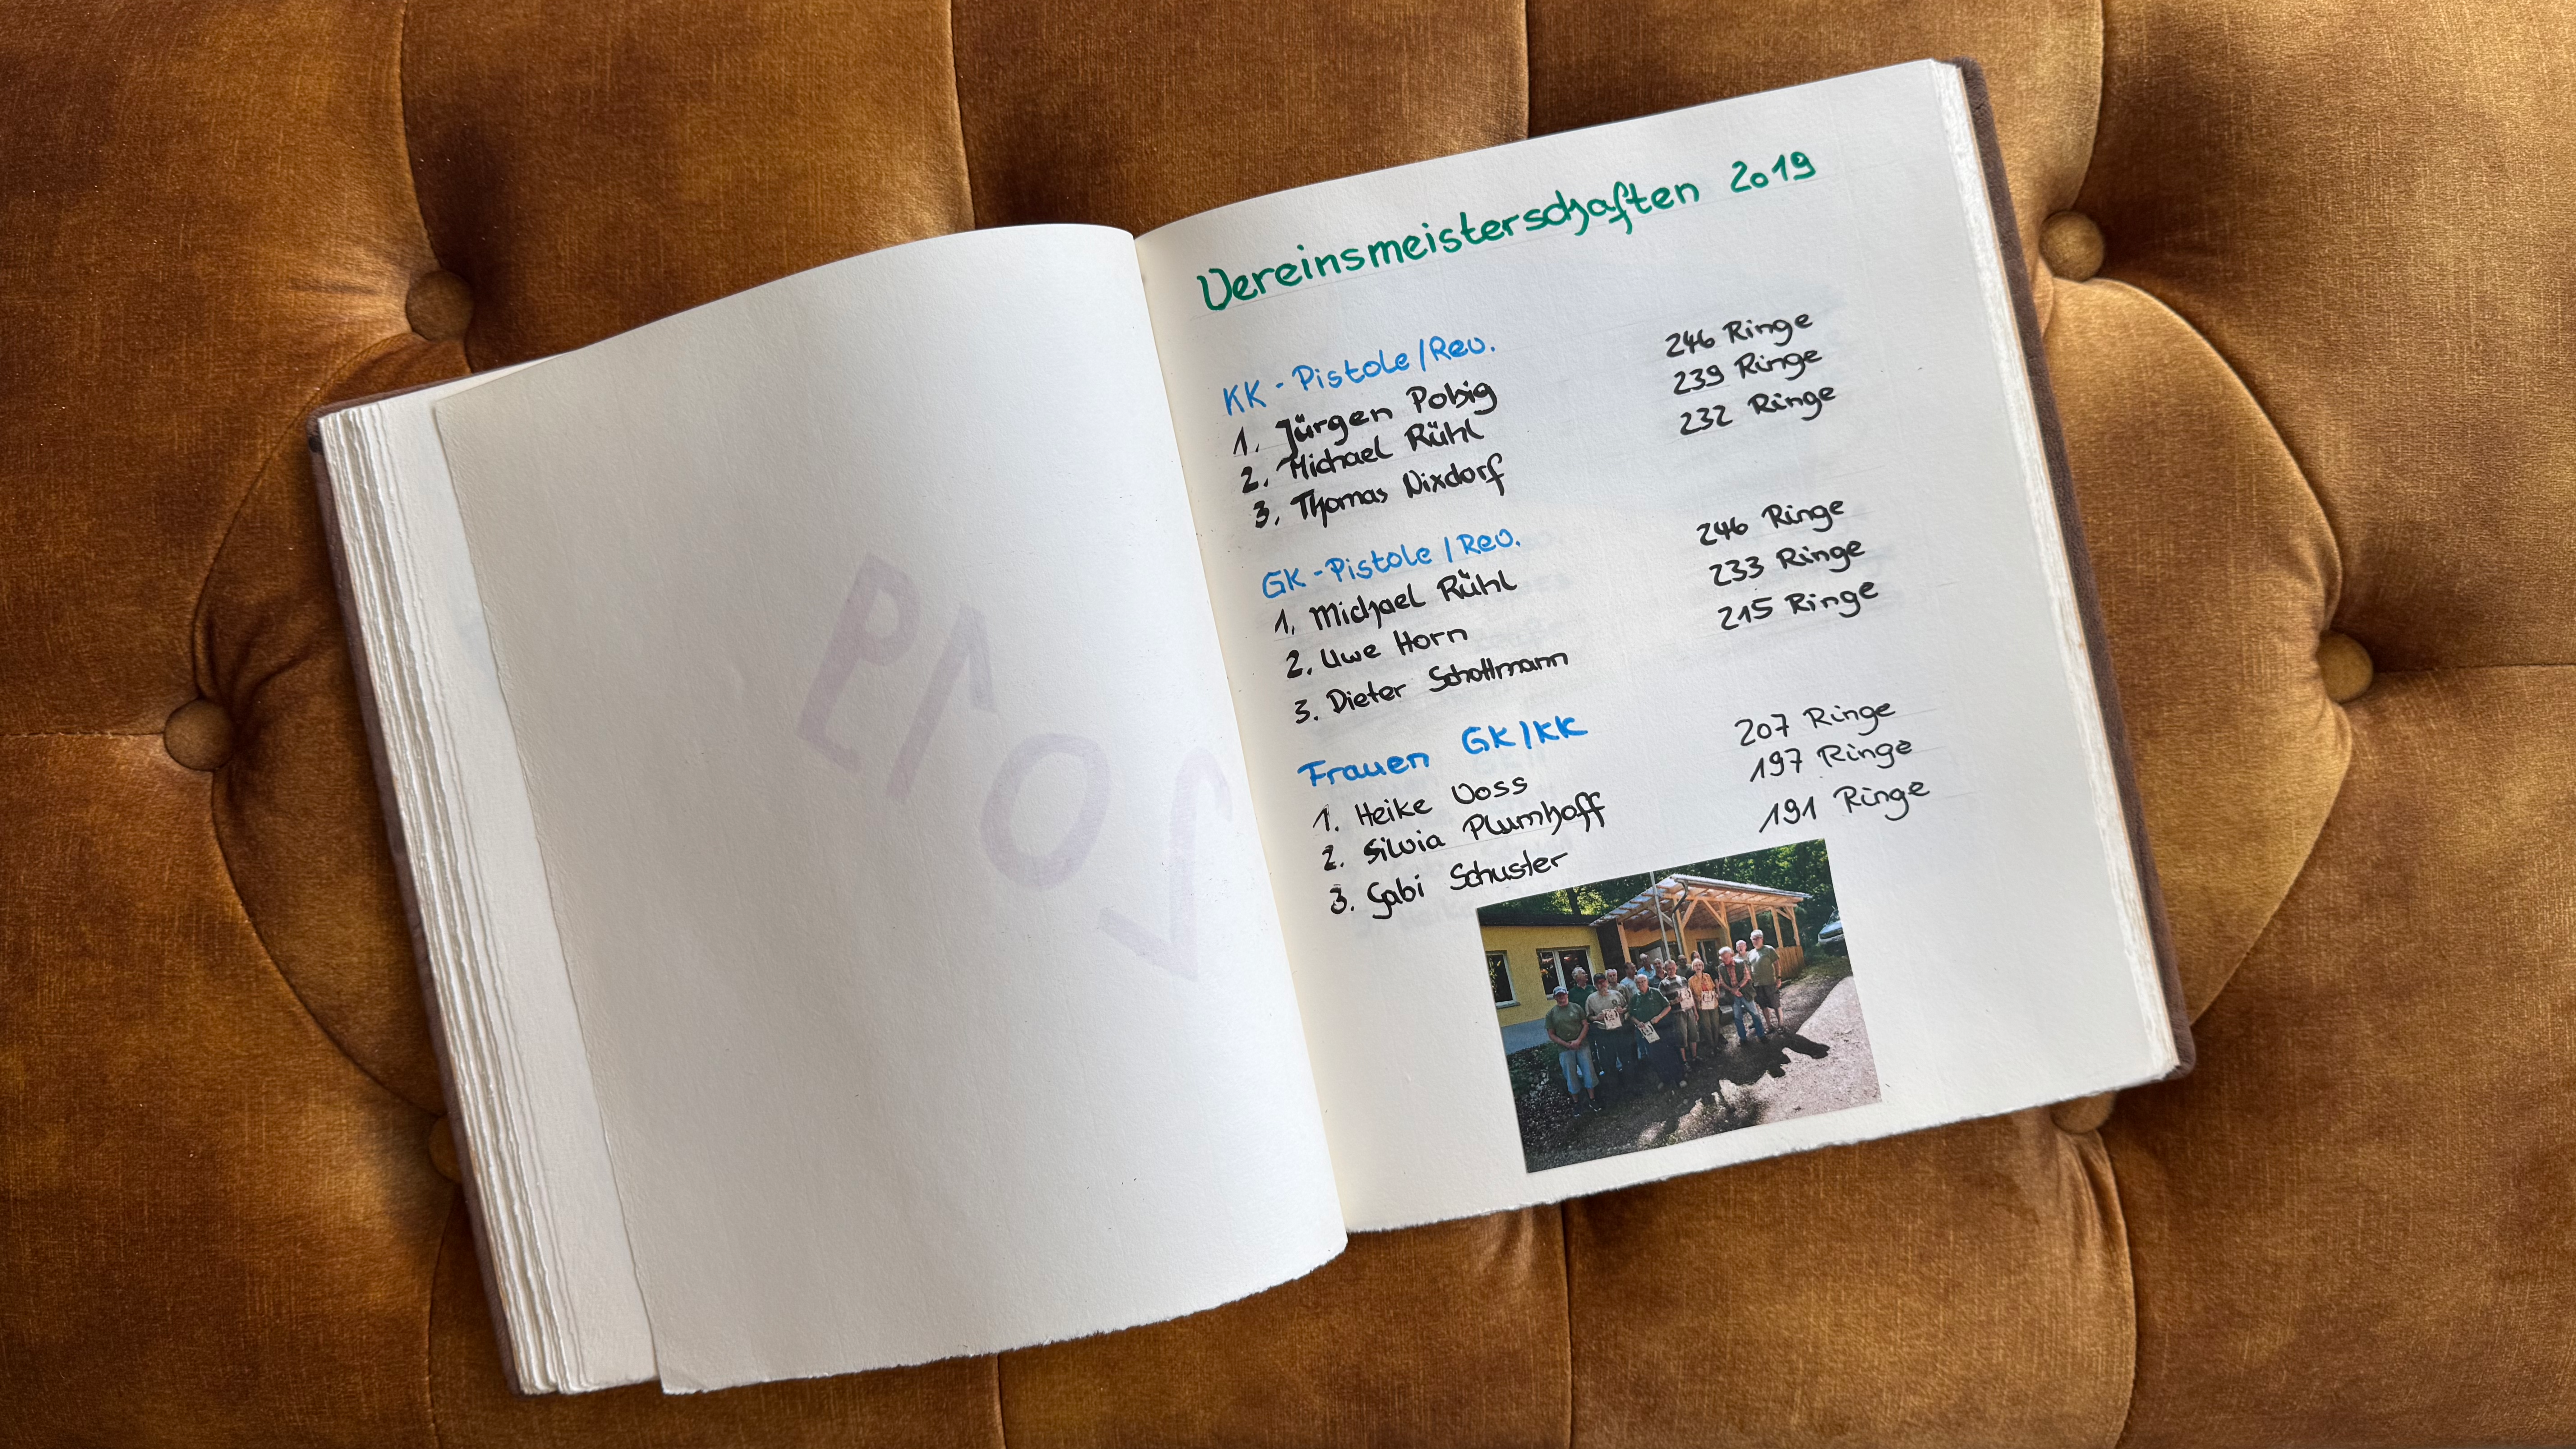 Vereinsmeisterschaften 2019
KK - Pistole / Rev.
1. Jürgen Pobig 246 Ringe
2. Michael Rühl 239 Ringe
3. Thomas Nixdorf 232 Ringe
GK - Pistole / Rev.
1. Michael Rühl 246 Ringe
2. Uwe Horn 233 Ringe
3. Dieter Schottmann 215 Ringe
Frauen GK/KK
1. Heike Voss 207 Ringe
2. Silvia Plumhoff 197 Ringe
3. Gabi Schuster 191 Ringe
2019